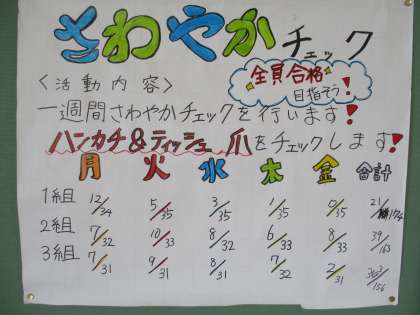 さわやかチェック
全員合格
目指そう!
〈活動内容〉
一週間さわやかチェックを行います!
ハンカチ&ティッシュ 爪をチェックします!
月 火 水 木 金 合計
1組 12/34 5/35 3/35 1/35 0/35 21/174
2組 7/32 10/33 8/32 6/33 8/33 39/163
3組 7/31 9/31 8/31 7/32 2/31 /156